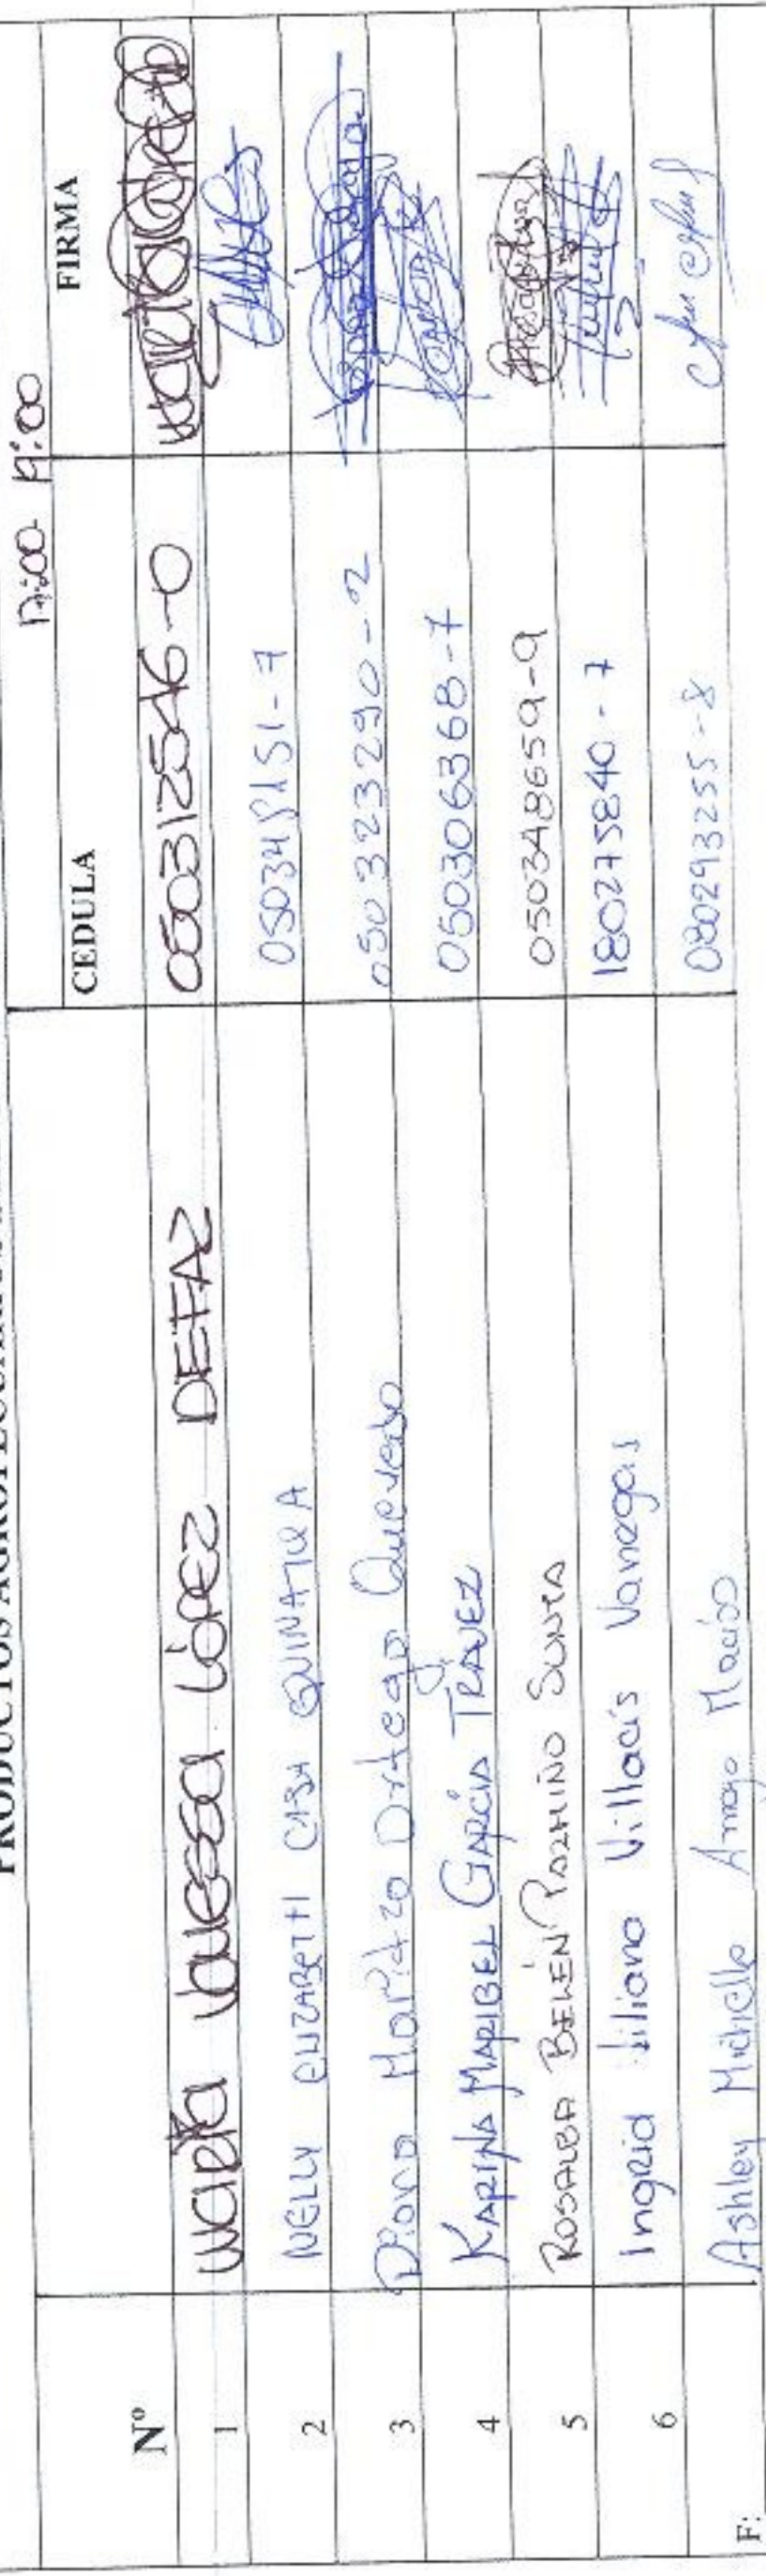 PRODUCTOS
17:00 19:00
Nº CEDULA FIRMA
1 María Vanessa López DEFAZ 050312546-0
2 NELLY ELIZABETH CASA QUINATOA 050348151-7
3 Diana Maritza Ortega Quevedo 050323290-2
4 KARINA MARIBEL GARCÍA TRAVEZ 050306368-7
5 ROSALBA BELÉN PAZMIÑO SUNTA 050348659-9
6 Ingrid Liliana Villacís Vanegas 180275840-7
Ashley Michelle Arroyo Macías 080293255-8
F: